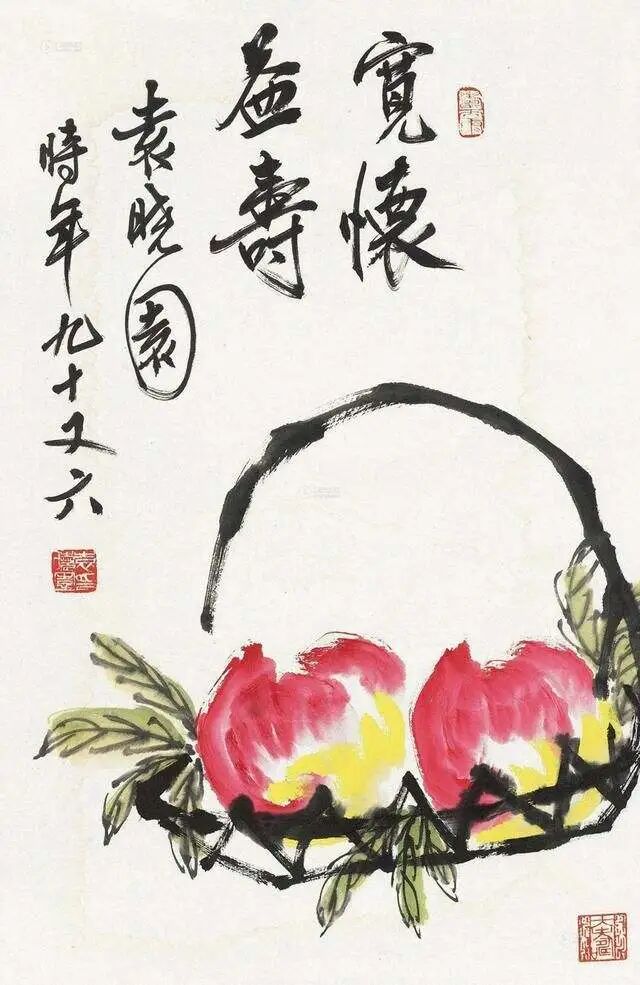 寬懷
益壽
袁晓園
時年九十又六